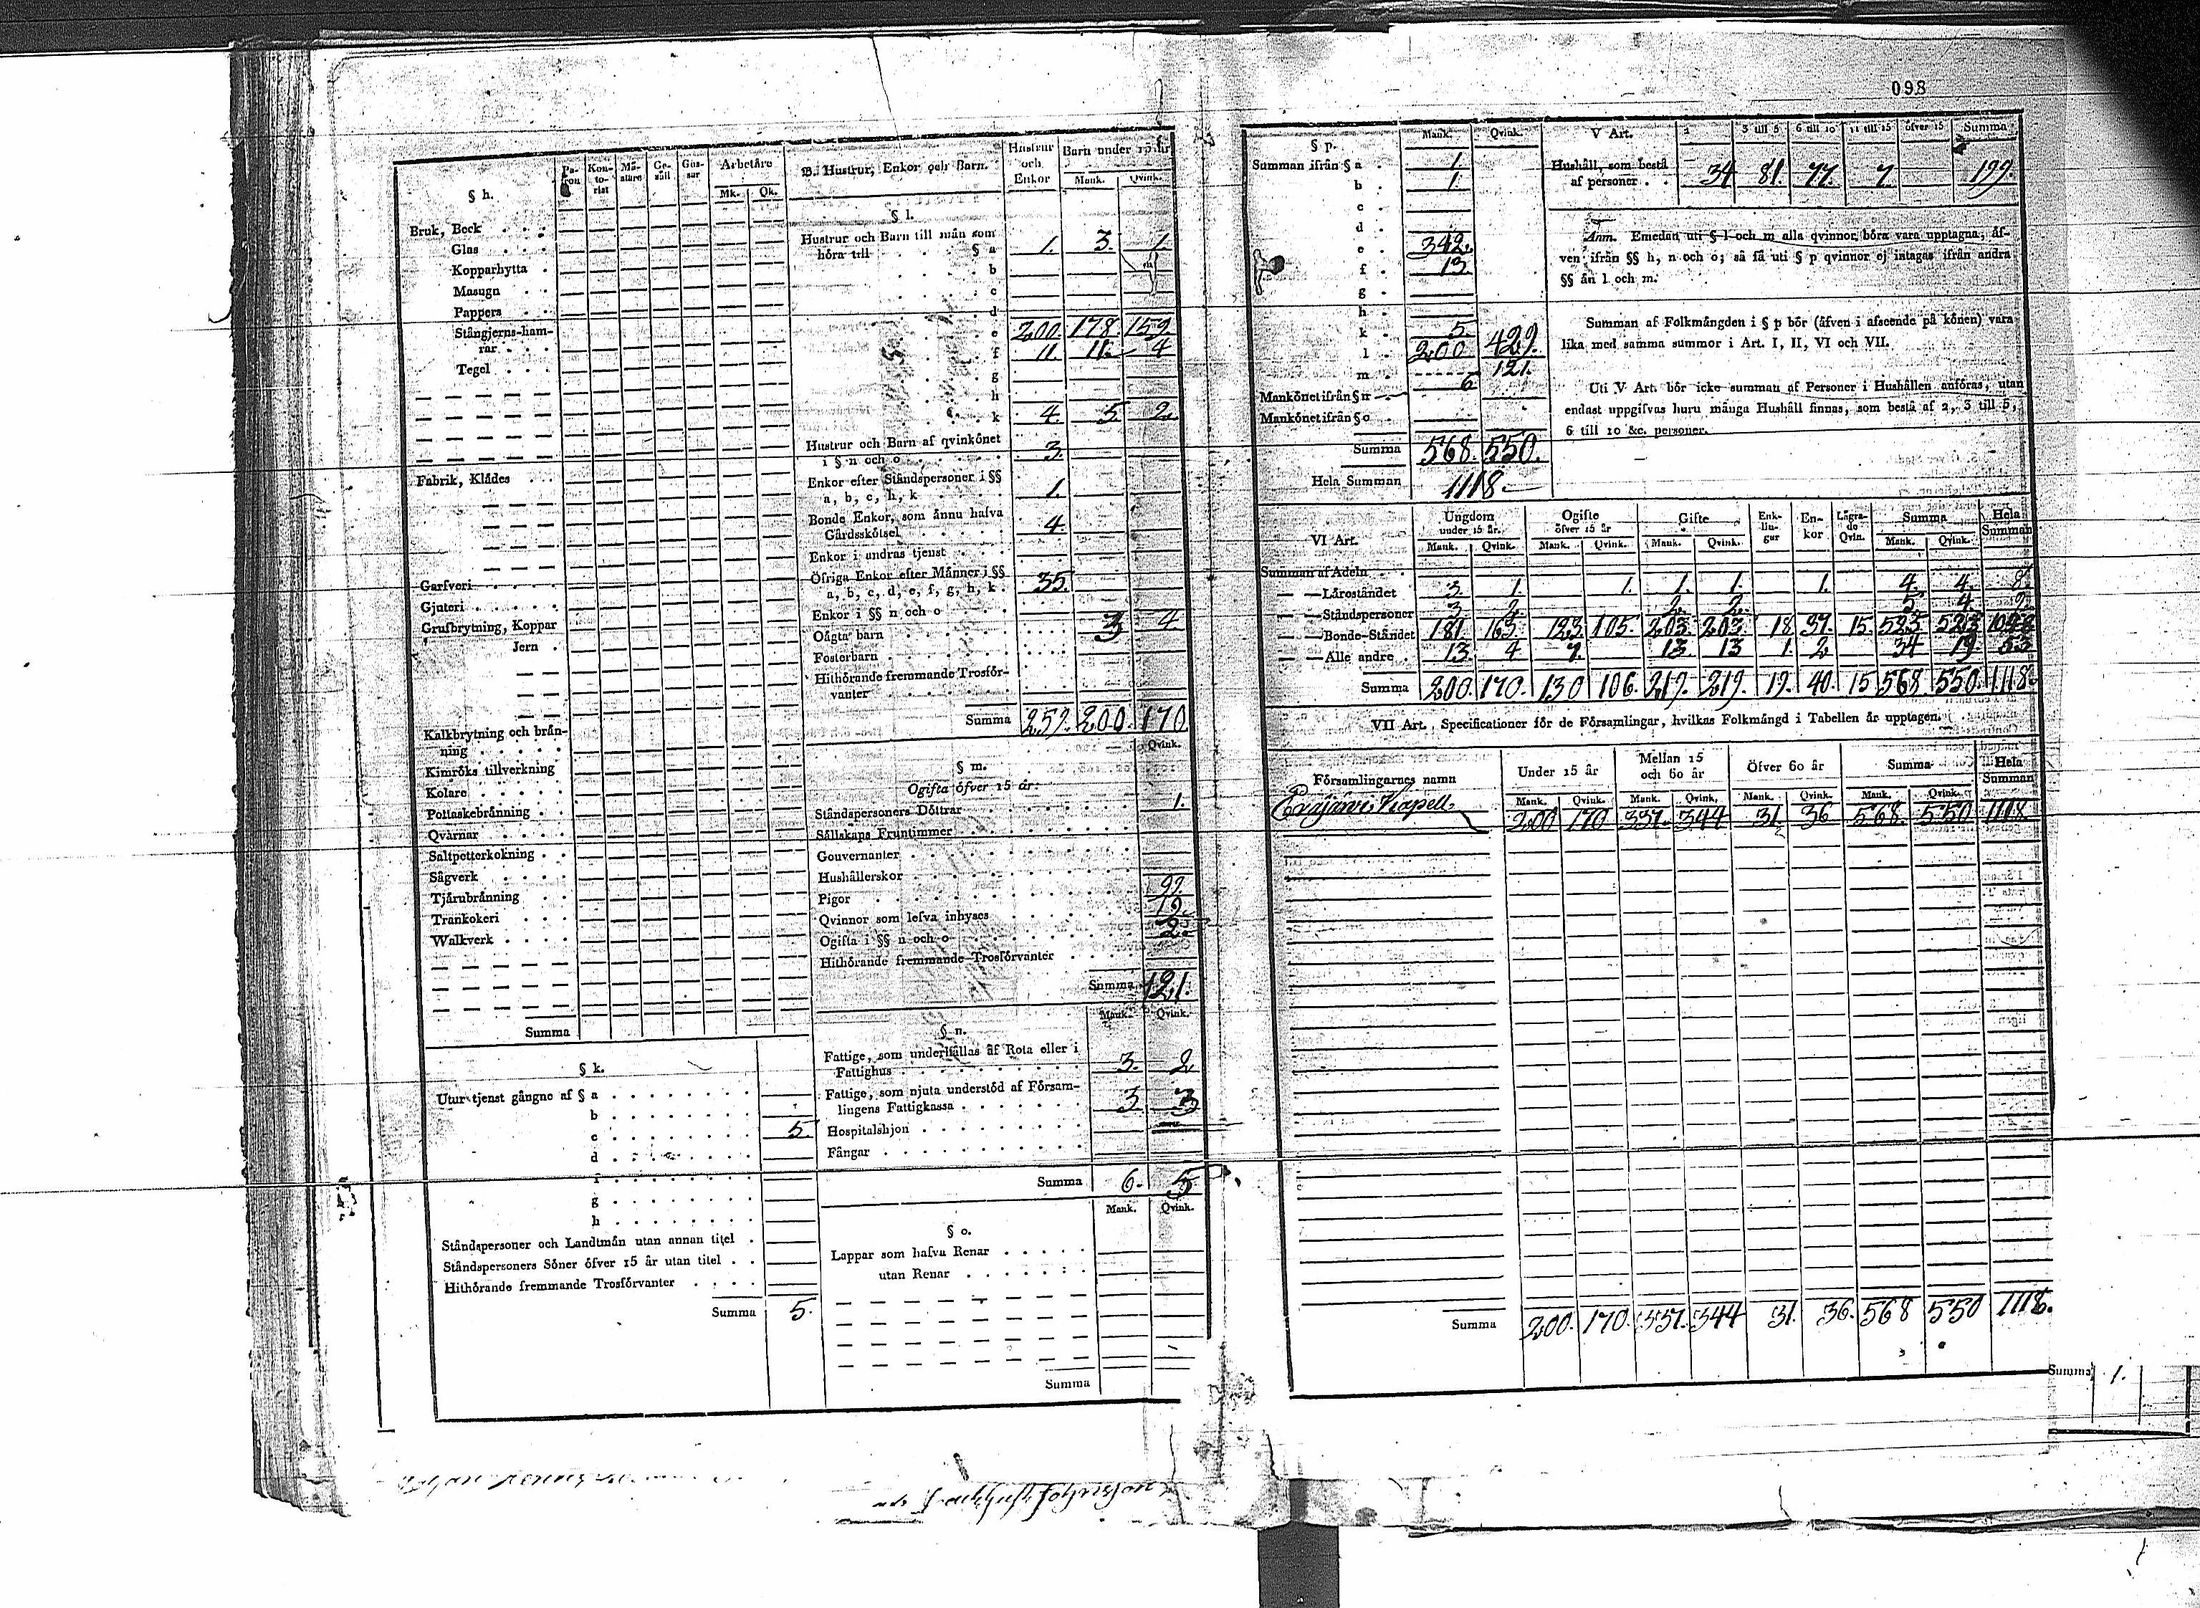 098
§ h.
Pa-
tron
Kon-
to-
rist
Mä-
stare
Ge-
säll
Gos-
sar
Arbetare
Mk.
Qk.
Bruk, Beck . . .
Glas . . .
Kopparhytta .
Masugn . .
Pappers . .
Stångjerns-ham-
rar . . .
Tegel . . .
Fabrik, Klädes . .
Garfveri . . . .
Gjuteri . . . .
Grufbrytning, Koppar
Jern .
Kalkbrytning och brän-
ning . . . .
Kimröks tillverkning
Kolare . . . .
Pottaskebränning . .
Qvarnar . . . .
Saltpetterkokning . .
Sågverk . . . .
Tjärubränning . .
Trankokeri . . .
Walkverk . . . .
Summa
§ k.
Utur tjenst gångne af § a . . . . . . . .
b . . . . . . . .
c . . . . . . . . 5.
d . . . . . . . .
f . . . . . . . .
g . . . . . . . .
h . . . . . . . .
Ståndspersoner och Landtmän utan annan titel .
Ståndspersoners Söner öfver 15 år utan titel . .
Hithörande fremmande Trosförvanter . . . .
Summa 5.
B. Hustrur, Enkor och Barn.
Hustrur
och
Enkor
Barn under 15 år
Mank.
Qvink.
§ l.
Hustrur och Barn till män som
höra till . . . . § a 1. 3. 1.
b
c
d
e 200. 178. 159.
f 11. 11. 4
g
h
k 4. 5 2.
Hustrur och Barn af qvinkönet
i § n och o . . . . . 3.
Enkor efter Ståndspersoner i §§
a, b, c, h, k . . . . 1.
Bonde Enkor, som ännu hafva
Gårdsskötsel . . . . 4.
Enkor i andras tjenst . . .
Öfriga Enkor efter Männer i §§
a, b, c, d, e, f, g, h, k . 35.
Enkor i §§ n och o . . . .
Oägta barn . . . . . 3 4.
Fosterbarn . . . . .
Hithörande fremmande Trosför-
vanter . . . . . .
Summa 259. 200. 170
Qvink.
§ m.
Ogifta öfver 15 år:
Ståndspersoners Döttrar . . . . . 1.
Sällskaps Fruntimmer . . . . .
Gouvernanter . . . . . . .
Hushållerskor . . . . . . .
Pigor . . . . . . . . 99.
Qvinnor som lefva inhyses . . . .
Ogifta i §§ n och o . . . . . 2.
Hithörande fremmande Trosförvanter . . . .
Summa 121.
Mank. Qvink.
§ n.
Fattige, som underhållas af Rota eller i
Fattighus . . . . . . . 3. 2.
Fattige, som njuta understöd af Försam-
lingens Fattigkassa . . . . . . 3 3
Hospitalshjon . . . . . . . .
Fångar . . . . . . . . .
Summa 6. 5
Mank. Qvink.
§ o.
Lappar som hafva Renar . . . . .
utan Renar . . . . . .
Summa
§ p.
Mank. Qvink.
Summan ifrån § a . 1.
b . 1.
c .
d .
e . 342.
f . 13
g .
h .
k . 5.
l . 200 429.
m . 121.
Mankönet ifrån § n 6
Mankönet ifrån § o .
Summa 568. 550.
Hela Summan 1118.
V Art.
2
3 till 5
6 till 10
11 till 15
öfver 15
Summa
Hushåll, som bestå
af personer . . 34 81. 77. 7 199.
Anm. Emedan uti § l och m alla qvinnor böra vara upptagna, äf-
ven ifrån §§ h, n och o; så få uti § p qvinnor ej intagas ifrån andra
§§ än l och m.
Summan af Folkmängden i § p bör (äfven i afseende på könen) vara
lika med samma summor i Art. I, II, VI och VII.
Uti V Art. bör icke summan af Personer i Hushållen anföras, utan
endast uppgifvas huru många Hushåll finnas, som bestå af 2, 3 till 5,
6 till 10 &c. personer.
VI Art.
Ungdom
under 15 år.
Mank. Qvink.
Ogifte
öfver 15 år
Mank. Qvink.
Gifte
Mank. Qvink.
Enk-
lin-
gar
En-
kor
Lägra-
de
Qvin.
Summa
Mank. Qvink.
Hela
Summan
Summan af Adeln . .
— — Läroståndet 3. 1. 1. 1. 1. 1. 4. 4. 8.
— — Ståndspersoner 3 2. 2. 2. 5 4. 9.
— — Bonde-Ståndet 181. 163. 123. 105. 203. 203. 18 37. 15. 523. 523
— — Alle andre . 13. 4 7. 13. 13 1. 2 34 19. 53
Summa 200. 170. 130 106. 219. 219. 19. 40. 15 568 550. 1118.
VII Art. Specificationer för de Församlingar, hvilkas Folkmängd i Tabellen är upptagen.
Församlingarnes namn
Under 15 år
Mank. Qvink.
Mellan 15
och 60 år
Mank. Qvink.
Öfver 60 år
Mank. Qvink.
Summa
Mank. Qvink.
Hela
Summan
Kapell 200 170 337. 344 31. 36 568. 550 1118.
Summa 200. 170. 337. 344 31. 36. 568 550 1118.
Summa 1.